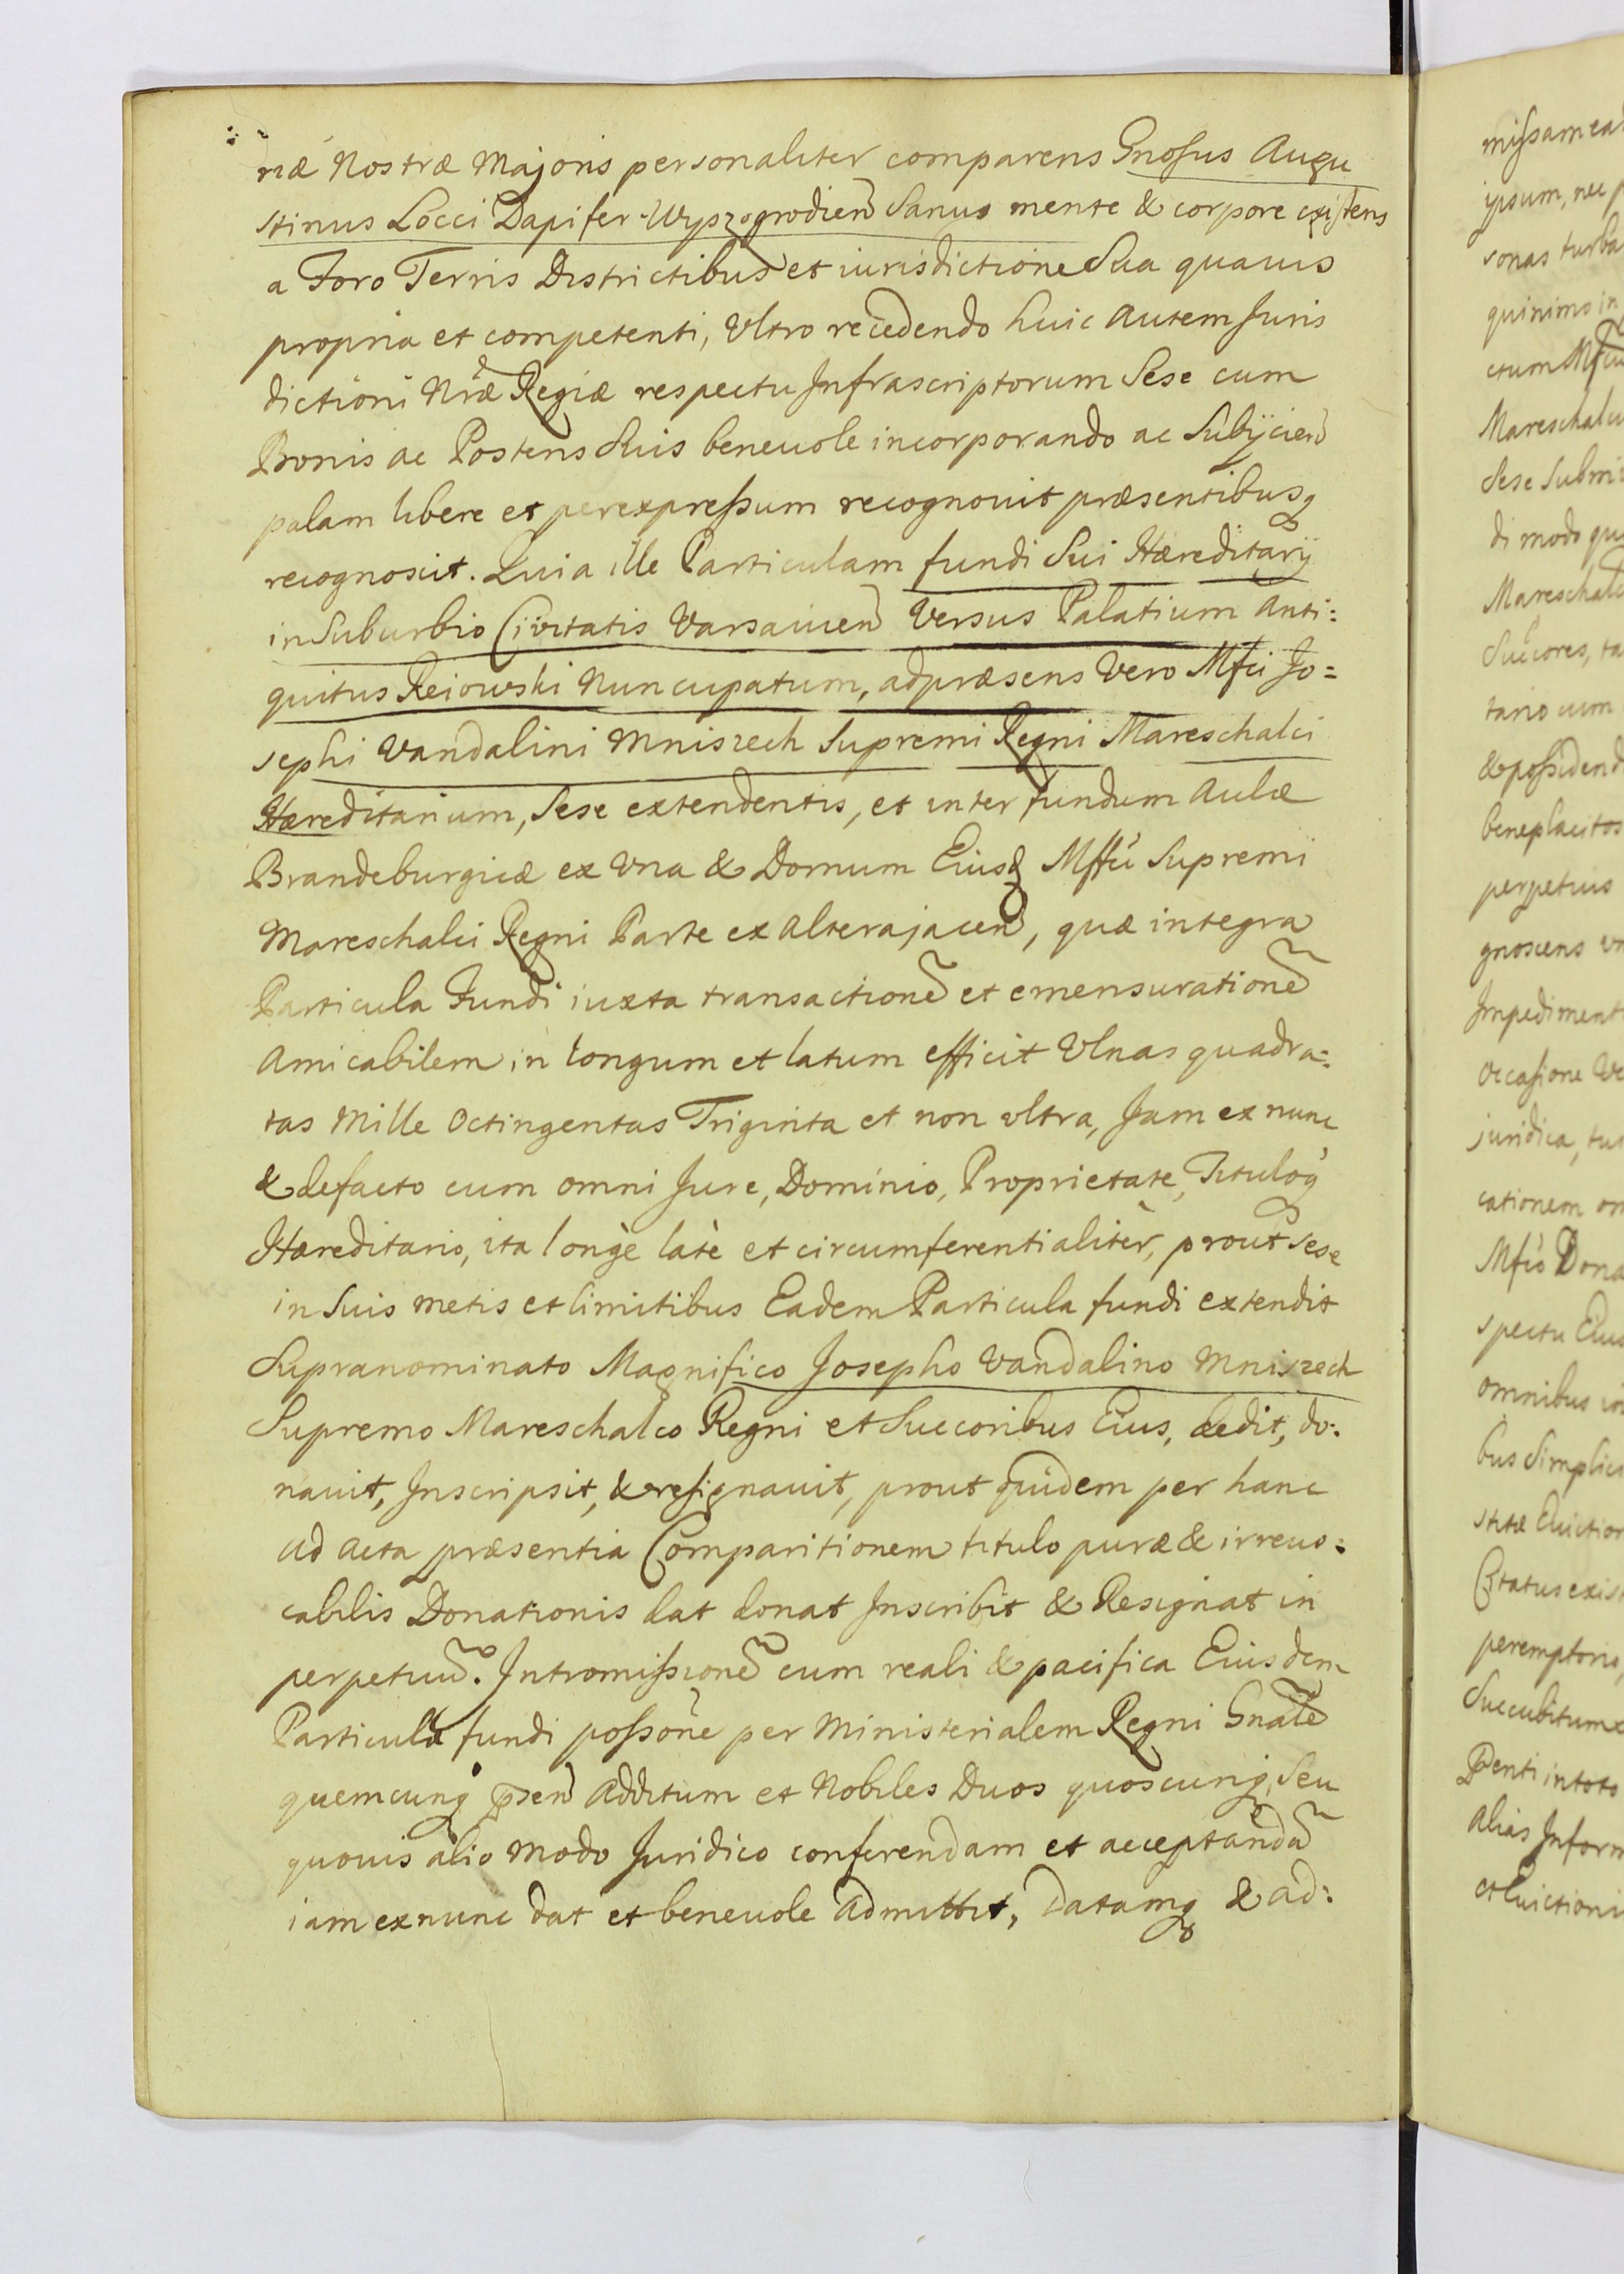 riæ Nostræ Majoris personaliter comparens Gnosus Augu
stinus Locci Dapifer Wyszogrodien Sanus mente & corpore existens
a Foro Terris Districtibus et iurisdictione Sua quauis
propria et competenti, Vltro recedendo huic Autem Juris
dictioni Nræ Regiæ respectu Infrascriptorum Sese cum
Bonis ac Posteris Suis beneuole incorporando ac Subijcien
palam libere et per expressum recognouit præsentibusq
recognoscit. Quia ille Particulam fundi Sui Hæreditarij
in Suburbio Civitatis Varsauien Versus Palatium Anti:
quitus Reiowski Nuncupatum, ad præsens Vero Mfci Jo=
sephi Vandalini Mniszech Supremi Regni Mareschalci
Hæreditarium, Sese extendentis, et inter fundum Aulæ
Brandeburgicæ ex Vna & Domum Eiusd Mffci Supremi
Mareschalci Regni Parte ex Altera jacen, quæ integra
Particula Fundi iuxta transactione et emensuratione
Amicabilem in longum et latum efficit Vlnas quadra:
tas Mille Octingentas Triginta et non vltra, Jam ex nunc
& defacto cum omni Jure, Dominio, Proprietate, Tituloq
Hæreditario, ita longè latè et circumferentialitèr, prout Sese
in Suis metis et limitibus Eadem Particula fundi extendit
Supranominato Magnifico Josepho Vandalino Mniszech
Supremo Mareschalco Regni et Succoribus Eius, dedit, do:
nauit, Inscripsit, & resignauit, prout quidem per hanc
ad Acta præsentia Comparitionem titulo puræ & irreuo:
cabilis Donationis dat donat Inscribit & Resignat in
perpetuu. Intromissione cum reali & pacifica Eiusdem
Particulæ fundi possone per Ministerialem Regni Gnale
quemcunq psen Additum et Nobiles Duos quoscunq, Seu
quouis alio Modo Juridico conferendam et acceptanda
iam ex nunc dat et beneuole Admittit, Datamq & ad: